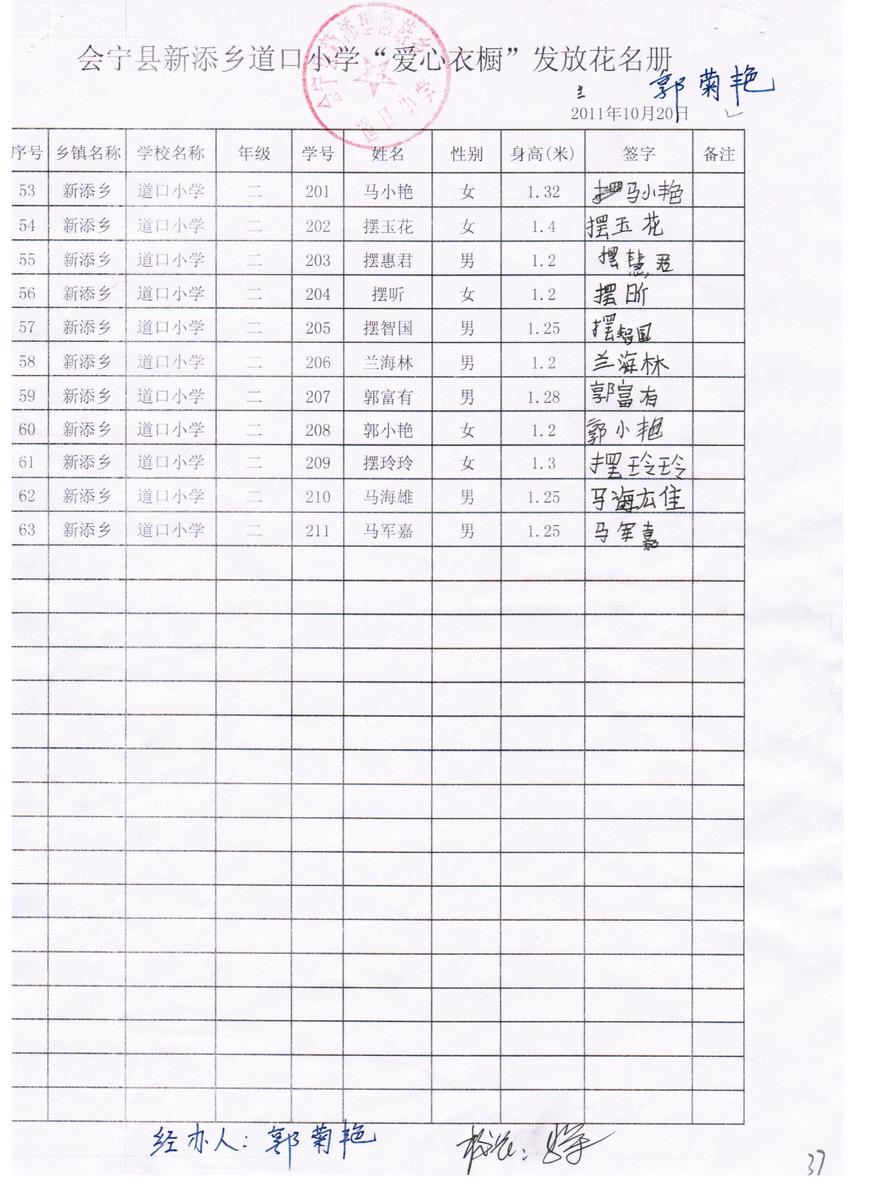 会宁县新添乡道口小学“爱心衣橱”发放花名册
郭菊艳
2011年10月20日
序号 乡镇名称 学校名称 年级 学号 姓名 性别 身高(米) 签字 备注
53 新添乡 道口小学 二 201 马小艳 女 1.32 马小艳
54 新添乡 道口小学 二 202 摆玉花 女 1.4 摆玉花
55 新添乡 道口小学 二 203 摆惠君 男 1.2 摆慧君
56 新添乡 道口小学 二 204 摆听 女 1.2 摆昕
57 新添乡 道口小学 二 205 摆智国 男 1.25 摆智国
58 新添乡 道口小学 二 206 兰海林 男 1.2 兰海林
59 新添乡 道口小学 二 207 郭富有 男 1.28 郭富有
60 新添乡 道口小学 二 208 郭小艳 女 1.2 郭小艳
61 新添乡 道口小学 二 209 摆玲玲 女 1.3 摆玲玲
62 新添乡 道口小学 二 210 马海雄 男 1.25 马海雄
63 新添乡 道口小学 二 211 马军嘉 男 1.25 马军嘉
经办人：郭菊艳
37